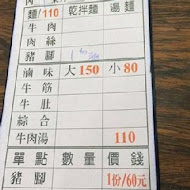 麵/110 乾拌麵 湯麵
牛肉
肉絲
豬腳
滷味 大150 小80
牛筋
牛肚
綜合
牛肉湯 110
單點 數量 價錢
豬腳 1份/60元